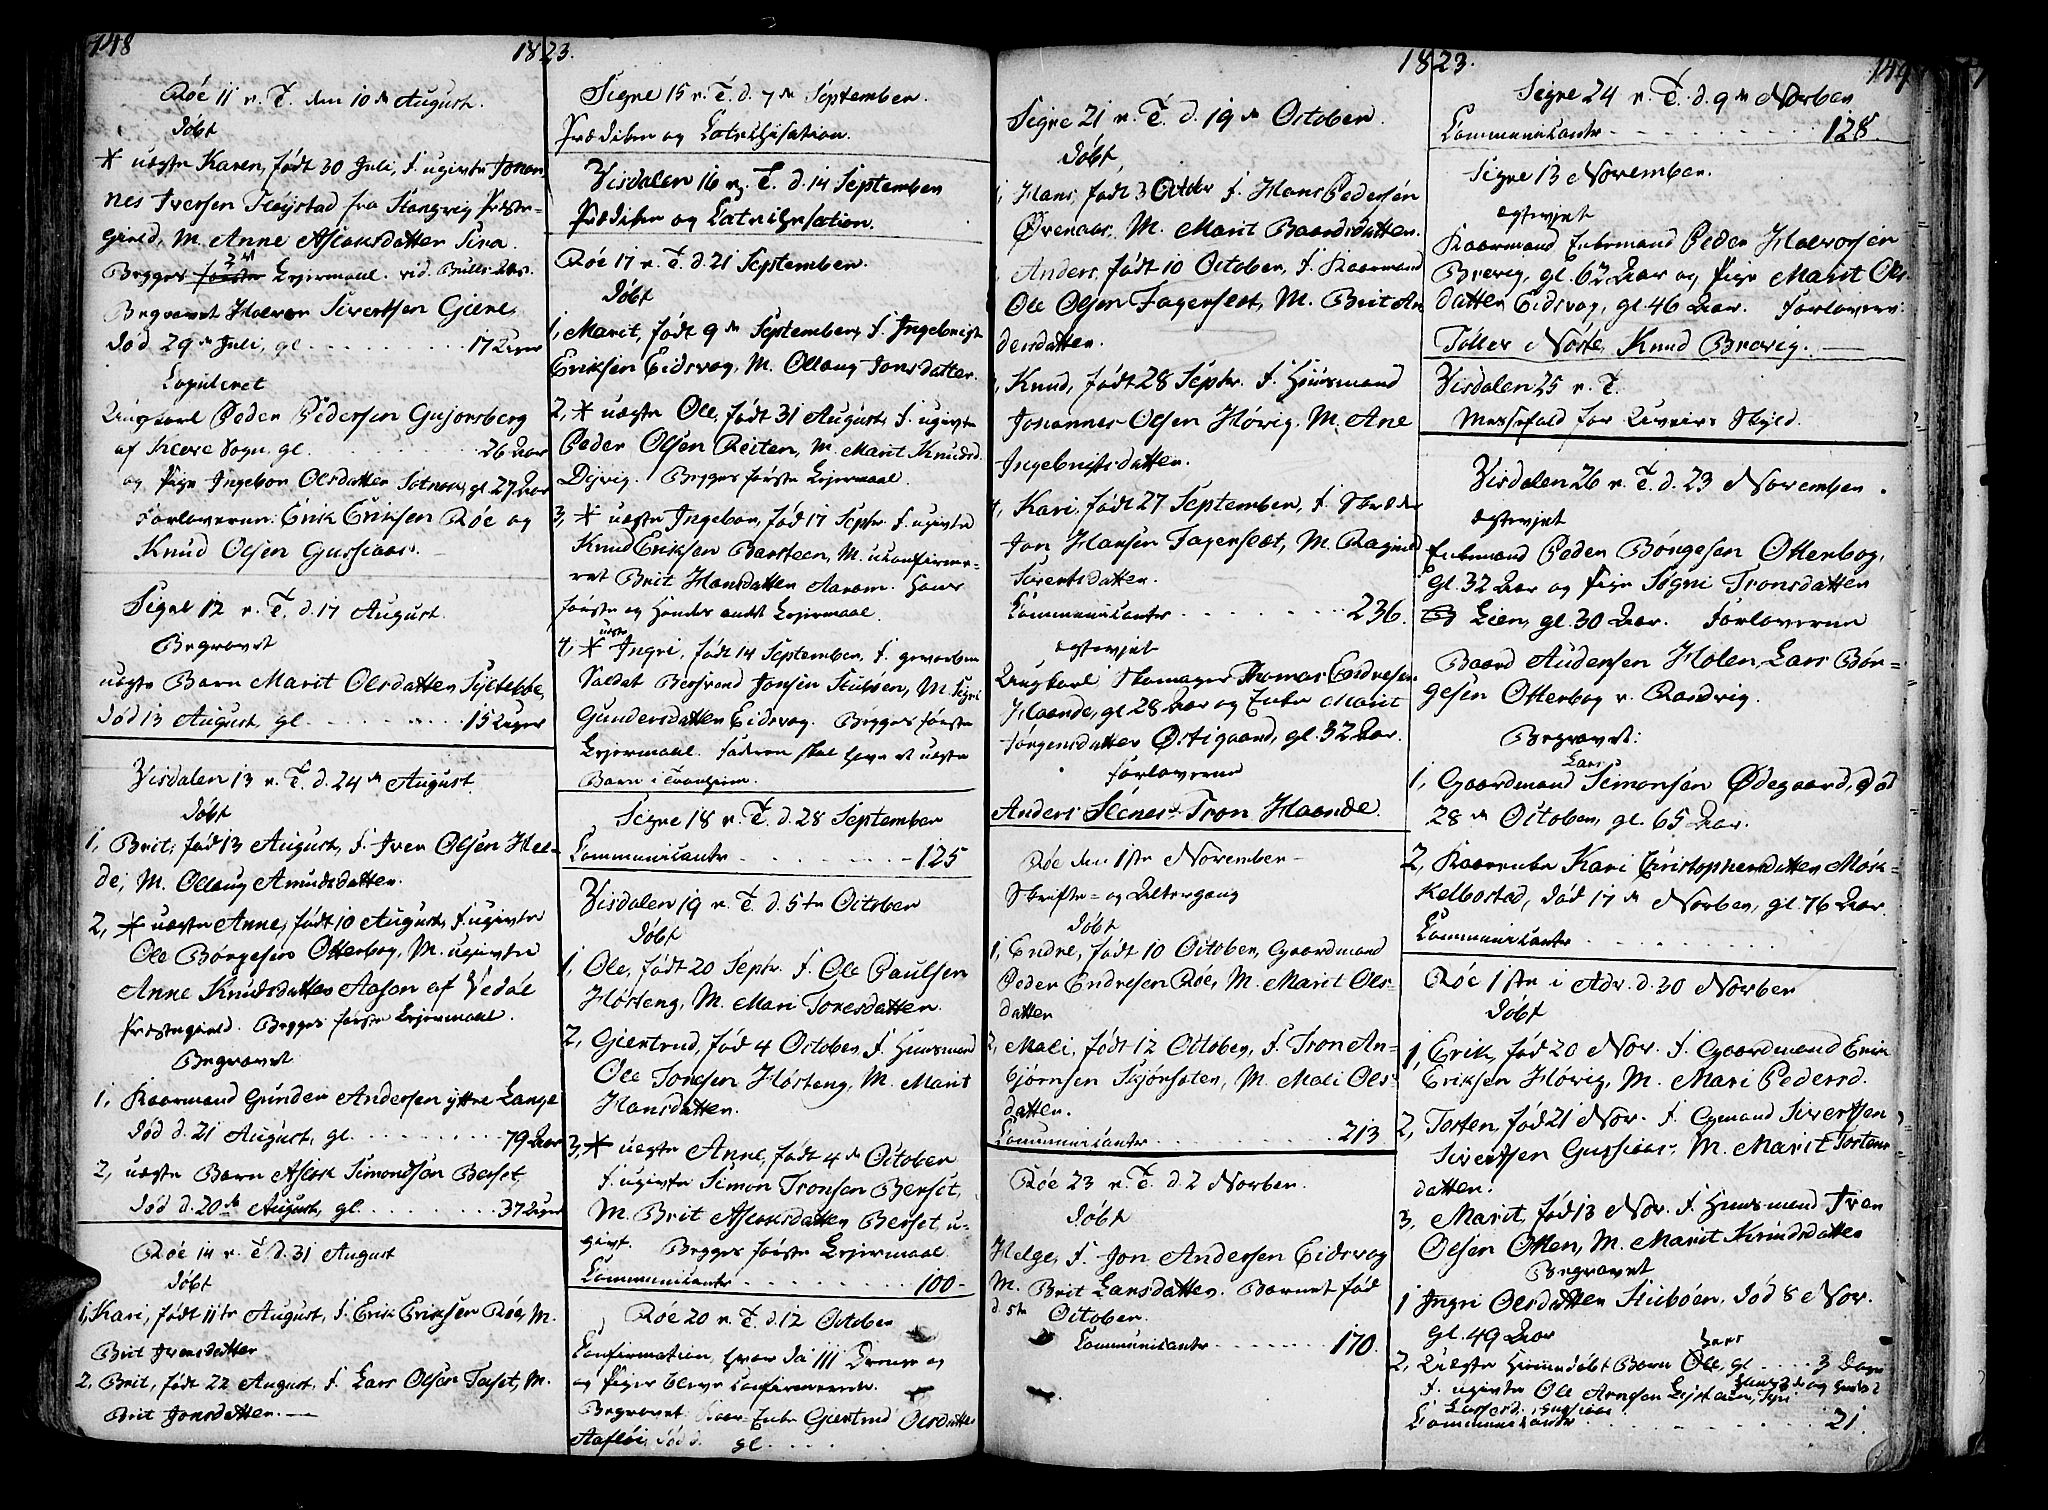 148
1823.
Røe 11 n. T. den 10de August.
Døbt
* uægte Karen, født 30 Juli, F. ugivte Johan-
nes Iversen Høystad fra Stangvig Præste-
gield, M. Anne Aslaksdatter Sira.
Begges 3die Leiermaal.
Begravet Halvor Sivertsen Giere,
død 29de Juli, gl. 17 Uger
Copuleret
Ungkarl Peder Pedersen Gusjorsberg
af Sogn, gl. 26 Aar
og Pige Ingebor Olsdatter Sotnak, gl. 27 Aar
Forloverne: Erik Eriksen Røe og
Knud Olsen Gussiaas.
Signe 12 n. T. d. 17 August.
Begravet
uægte Barn Marit Olsdatter Syltebøe,
død 13 August, gl. 15 Uger
Visdalen 13 n. T. d. 24de August.
Døbt
1, Brit, fød 13 August, F. Iver Olsen Hel-
de, M. Ollaug Amundsdatter.
2, * uægte Anne, født 10 August, F. ugivte
Ole Børgesen Otterbog, M. ugivte
Anne Knudsdatter Aasen af Vedøe
Præstegield. Begges første Leiermaal.
Begravet
1, Kaarmand Gunder Andersen yttre Lange
død d. 21 August, gl. 79 Aar
2, uægte Barn Aslak Simondsen Berset,
død d. 20de August, gl. 37 Uger
Røe 14 n. T. d. 31 August
Døbt
1, Kari, født 11te August, F. Erik Eriksen Røe, M.
Brit Iversdatter
2, Brit, født 22 August, F. Lars Olsen Toset, M.
Brit Jonsdatter.
Signe 15 n. T. d. 7de September.
Prædiken og Catechisation.
Visdalen 16 n. T. d. 14 September
Prædiken og Catechisation.
Røe 17 n. T. d. 21 September.
Døbt
1, Marit, født 9de September, F. Ingebrigt
Eriksen Eidsvog, M. Ollaug Jonsdatter.
2, * uægte Ole, født 31 August, F. ugivte
Peder Olsen Reiten, M. Marit Knudsd.
Djvig. Begges første Leiermaal.
3, * uægte Ingebor, fød 17 Septbr. F. ugivte
Knud Eriksen Barsteen, M. ukonfirme-
ret Brit Hansdatter Aarøm. Hans
første og Hendes andet Leiermaal.
4, * uægte Ingri, født 14 September, F. geworben
Soldat Bersvend Jonsen Stubøen, M. Sigri
Gundersdatter Eidsvog. Begges første
Leiermaal. Faderen skal have et uægte
Barn i Tronhiem.
Signe 18 n. T. d. 28 September
Communicantere 125
Visdalen 19 n. T. d. 5te October
Døbt
1, Ole, født 20 Septr. F. Ole Paulsen
Hørteng, M. Mari Toresdatter.
2, Giertrud, fød 4 October, F. Huusmand
Ole Toresen Hørteng, M. Marit
Hansdatter.
3, * uægte Anne, født 4de October
F. ugivte Simon Tronsen Berset,
M. Brit Aslaksdatter Berset, u-
givt. Begges første Leiermaal.
Communicantere 100
Røe 20 n. T. d. 12 October
Confirmation, hvor da 111 Drenge og
og Piger bleve confirmerede.
Begravet: Kaar-Enke Giertrud Olsdatter
Aafløi, død d. gl.
1823.
149
Signe 21 n. T. d. 19de October.
Døbt
1, Hans, født 3 Octobr F. Hans Pedersen
Øvenaas, M. Marit Baardsdatter.
Anders, født 10 October, F. Kaarmand
Ole Olsen Fagersest, M. Brit An-
dersdatter.
Knud, født 28 Septbr. F. Huusmand
Johannes Olsen Høvig, M. Ane
Ingebrigtsdatter.
4, Kari, født 27 September, F. Skrædder
Jon Hansen Fagersæt, M. Ragnild
Sivertsdatter.
Communicantere 236.
ægteviet
Ungkarl Skomager Thomas Endresen
Haande, gl. 28 Aar og Enke Marit
Jørgensdatter Østigaard, gl. 32 Aar.
Forloverne
Anders Slenes, Tron Haande.
Røe den 1ste November
Skrifte- og Altergang
Døbt
1, Endre, født 10 October, Gaardmand
Peder Endresen Røe, M. Marit Ols-
datter
2, Mali, født 12 October, F. Tron An-
bjørnsen Skjørsæter, M. Mali Ols-
datter.
Communicantere 213
Røe 23 n. T. d. 2 Novbr.
Døbt
Helge, F. Jon Andersen Eidsvog
M. Brit Larsdatter. Barnet fød
d. 5te October.
Communicantere 170.
Signe 24 n. T. d. 9de Novber
Communicantere 128.
Signe 13 November.
ægteviet
Kaarmand Enkemand Peder Halvorsen
Brevig, gl. 62 Aar og Pige Marit Ols-
datter Eidsvog, gl. 46 Aar. Forlovere:
Toller Nøste, Knud Brevig.
Visdalen 25 n. T.
Messefald for Uveirs Skyld.
Visdalen 26 n. T. d. 23 November.
ægteviet
Enkemand Peder Børgesen Otterbog,
gl. 32 Aar og Pige Sigri Tronsdatter
Lien, gl. 30 Aar. Forloverne
Baard Andersen Holen, Lars Bør-
gesen Otterbog v. Randvig.
Begravet:
1, Gaardmand Lars Simonsen Ødegaard, død
28de October, gl. 65 Aar.
2, Kaarenke Kari Christophersdatter Møk-
kelbostad, død 17de Novber, gl. 76 Aar.
Communicantere
Røe 1ste i Adv. d. 30 Novber
Døbt
1, Erik, fød 20 Nov. F. Gaardmand Erik
Eriksen Høvig, M. Mari Pedersd.
2, Torsten, fød 21 Nov. F. Gmand Sivert
Sivertsen Gussiaas, M. Marit Torstens
datter.
3, Marit, fød 13 Nov. F. Huusmand Iver
Olsen Otten, M. Marit Knudsdatter
Begravet
1 Ingri Olsdatter Stubøen, død 8 Nov.
gl. 49 Aar
2, Uægte Hiemmedøbt Barn Ole, gl. 3 Dage
F. ugivte Ole Arnesen
Larsd. Gussiaas
Communicantere 21.